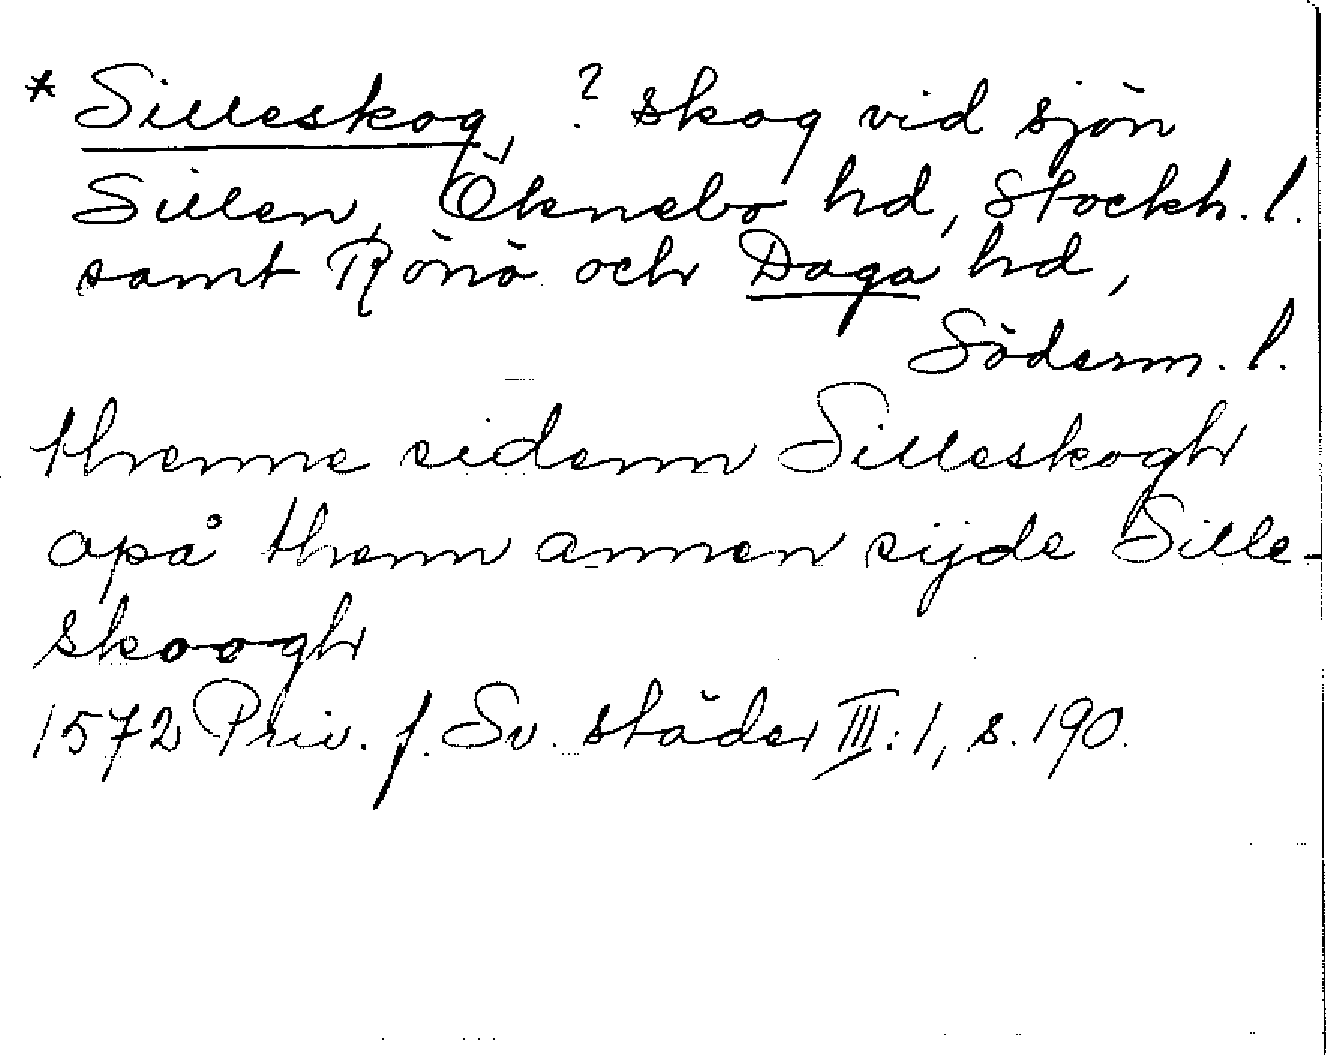 * Silleskog, ? skog vid sjön
Sillen, Öknebo hd, Stockh. l.
samt Rönö och Daga hd,
Söderm. l.
thenne sidenn Silleskogh
opå thenn annen sijde Sille-
skoogh
1572 Priv. f. Sv. städer III: 1, s. 190.